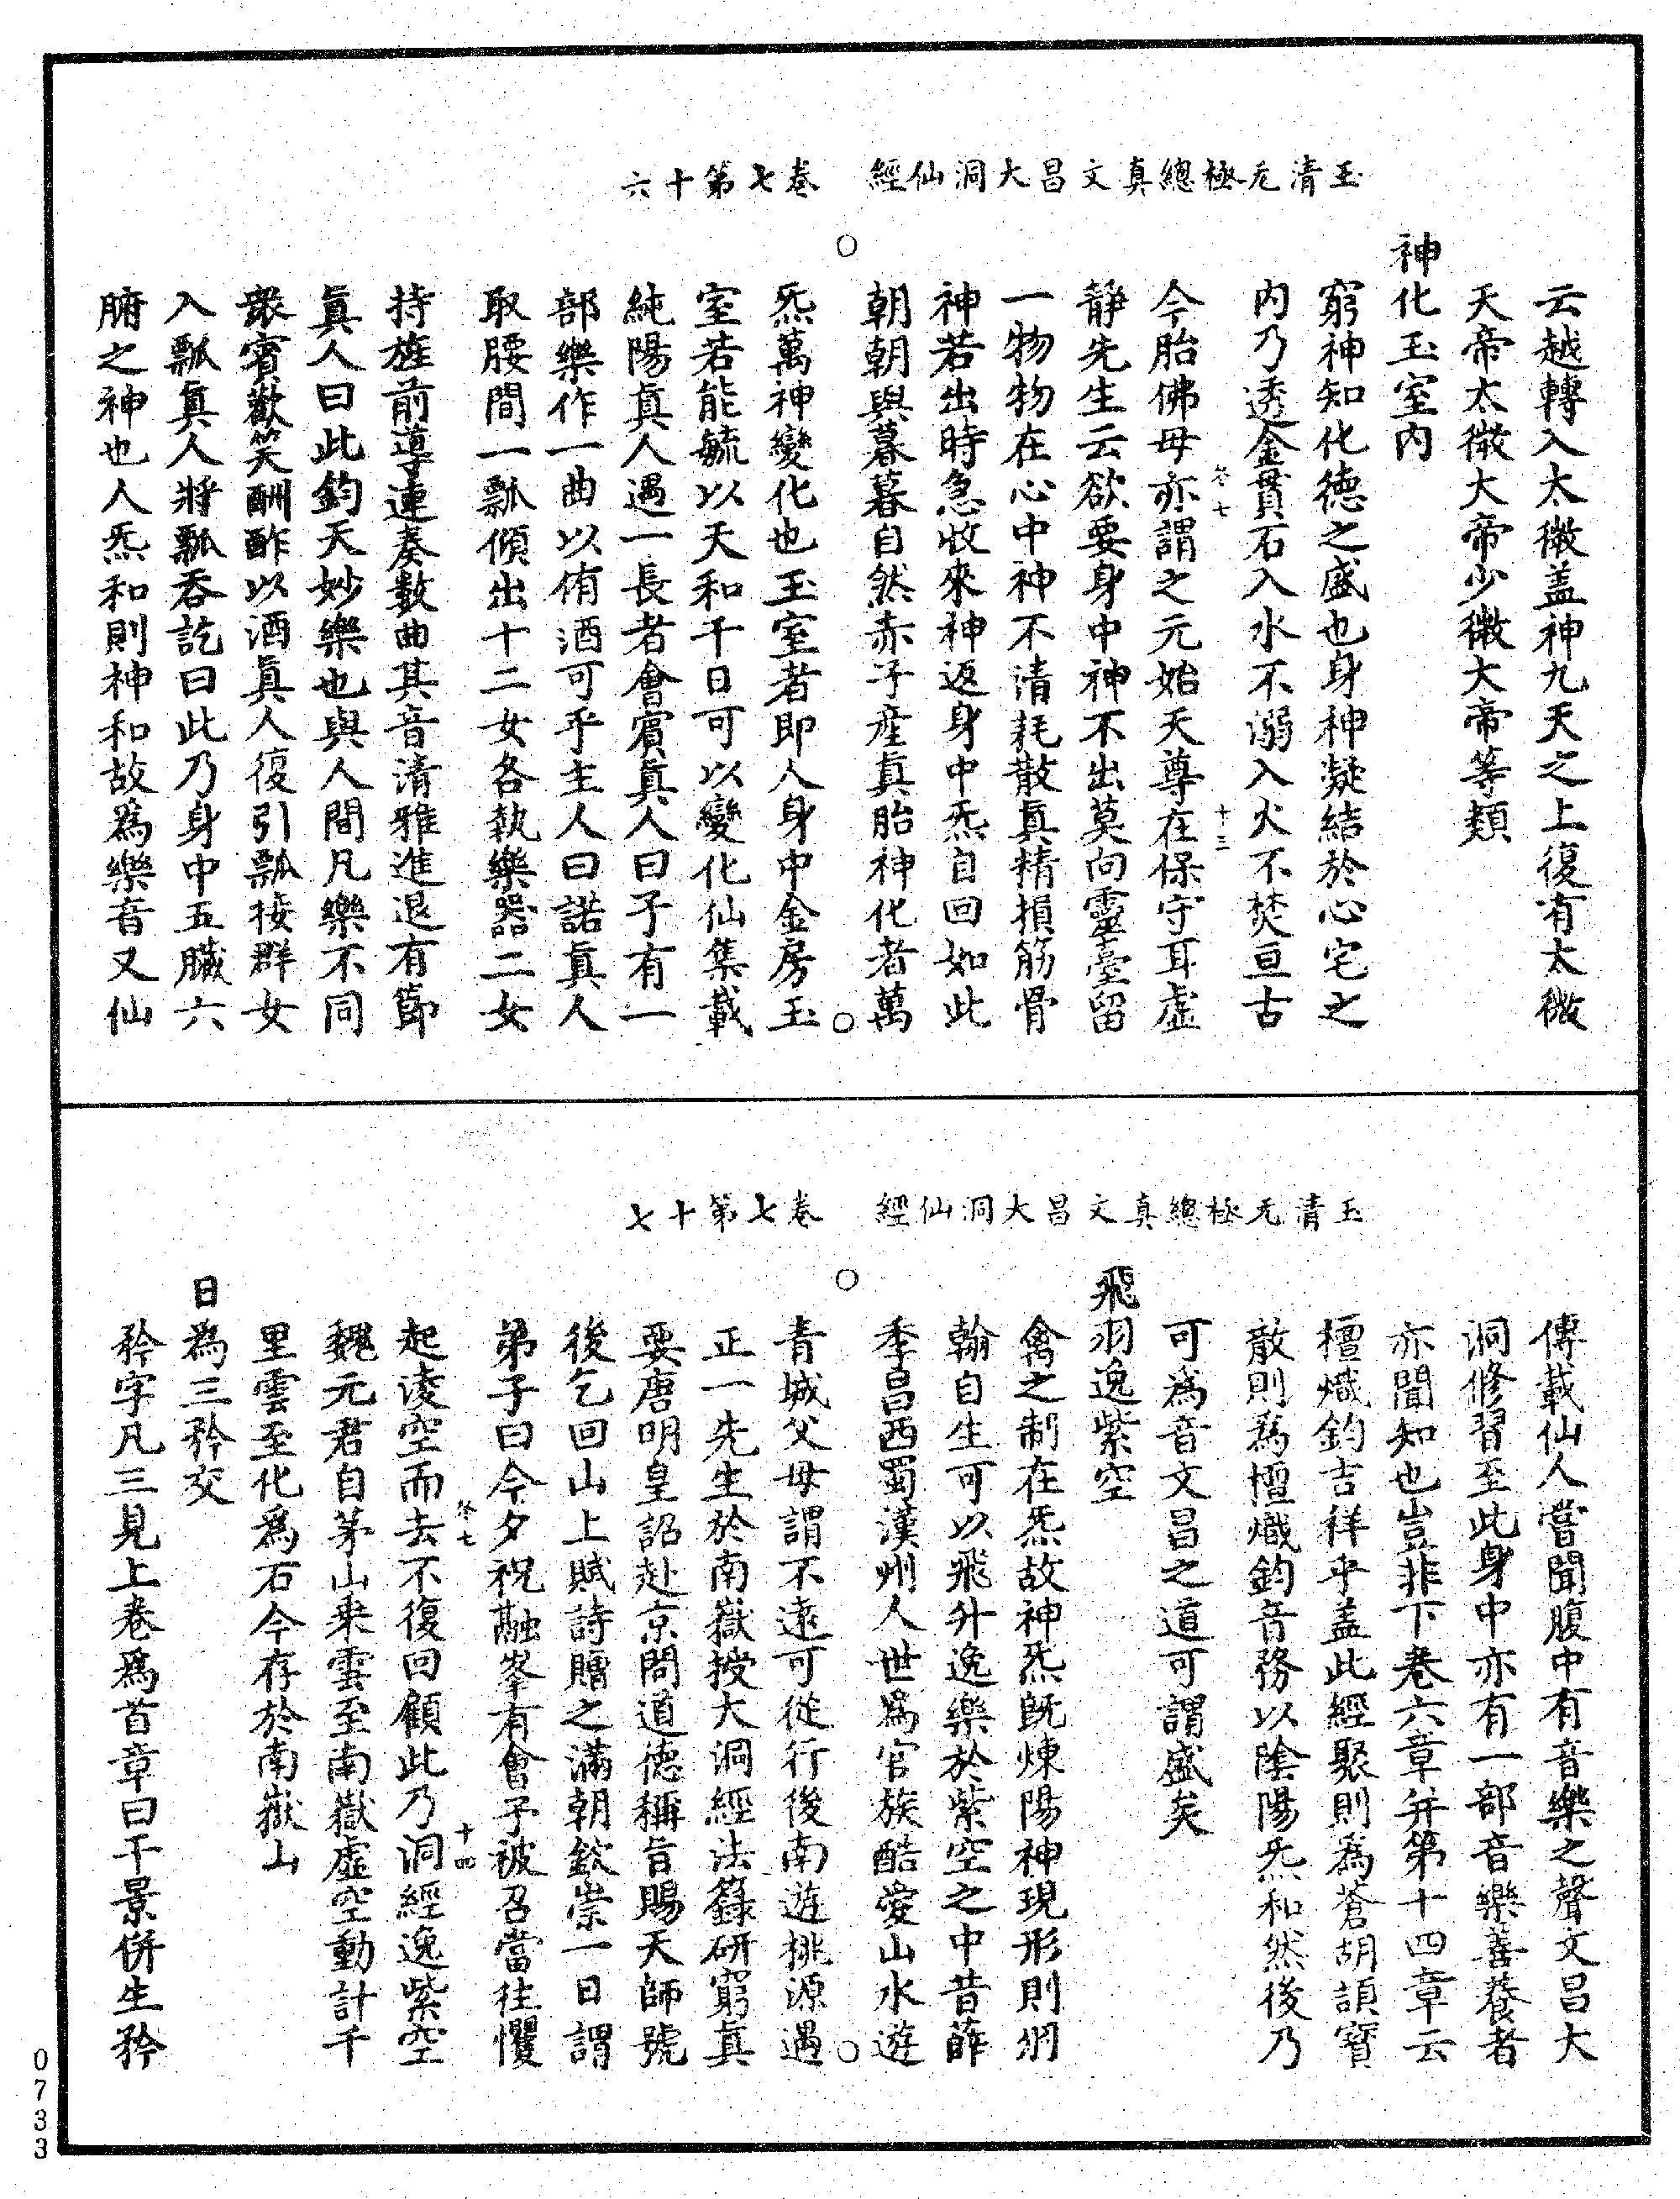 玉清无極總真文昌大洞仙經　卷七第十六
云越轉入太微盖神九天之上復有太微
天帝太微大帝少微大帝等類
神化玉室內
窮神知化德之盛也身神凝結於心宅之
內乃透金貫石入水不溺入火不焚亘古
卷七　十三
今胎佛母亦謂之元始天尊在保守耳虛
静先生云欲要身中神不出莫向靈臺留
一物物在心中神不清耗散真精損筋骨
神若出時急收來神返身中炁自回如此
朝朝與暮暮自然赤子産真胎神化者萬
炁萬神變化也玉室者即人身中金房玉
室若能毓以天和千日可以變化仙集載
純陽真人遇一長者會賓真人曰予有一
部樂作一曲以侑酒可乎主人曰諾真人
取腰間一瓢傾出十二女各執樂器二女
持旌前導連奏數曲其音清雅進退有節
真人曰此鈞天妙樂也與人間凡樂不同
衆賓歡笑酬酢以酒真人復引瓢接群女
入瓢真人將瓢吞訖曰此乃身中五臟六
腑之神也人炁和則神和故爲樂音又仙
玉清无極總真文昌大洞仙經　卷七第十七
傳載仙人嘗聞腹中有音樂之聲文昌大
洞修習至此身中亦有一部音樂善養者
亦聞知也豈非下卷六章并第十四章云
檀熾鈞吉祥乎盖此經聚則爲蒼胡頡寶
散則爲檀熾鈞音務以陰陽炁和然後乃
可爲音文昌之道可謂盛矣
飛羽逸紫空
禽之制在炁故神炁旣煉陽神現形則羽
翰自生可以飛升逸樂於紫空之中昔薛
季昌西蜀漢州人世爲官族酷愛山水遊
青城父母謂不遠可從行後南遊桃源遇
正一先生於南嶽授大洞經法籙研窮真
要唐明皇詔赴京問道德稱旨賜天師號
後乞回山上賦詩贈之滿朝欽崇一日謂
弟子曰今夕祝融峯有會予被召當往懼
卷七　十四
起淩空而去不復回顧此乃洞經逸紫空
魏元君自茅山乘雲至南嶽虛空動計千
里雲至化爲石今存於南嶽山
日爲三矜交
矜字凡三見上卷爲首章曰千景併生矜
0733